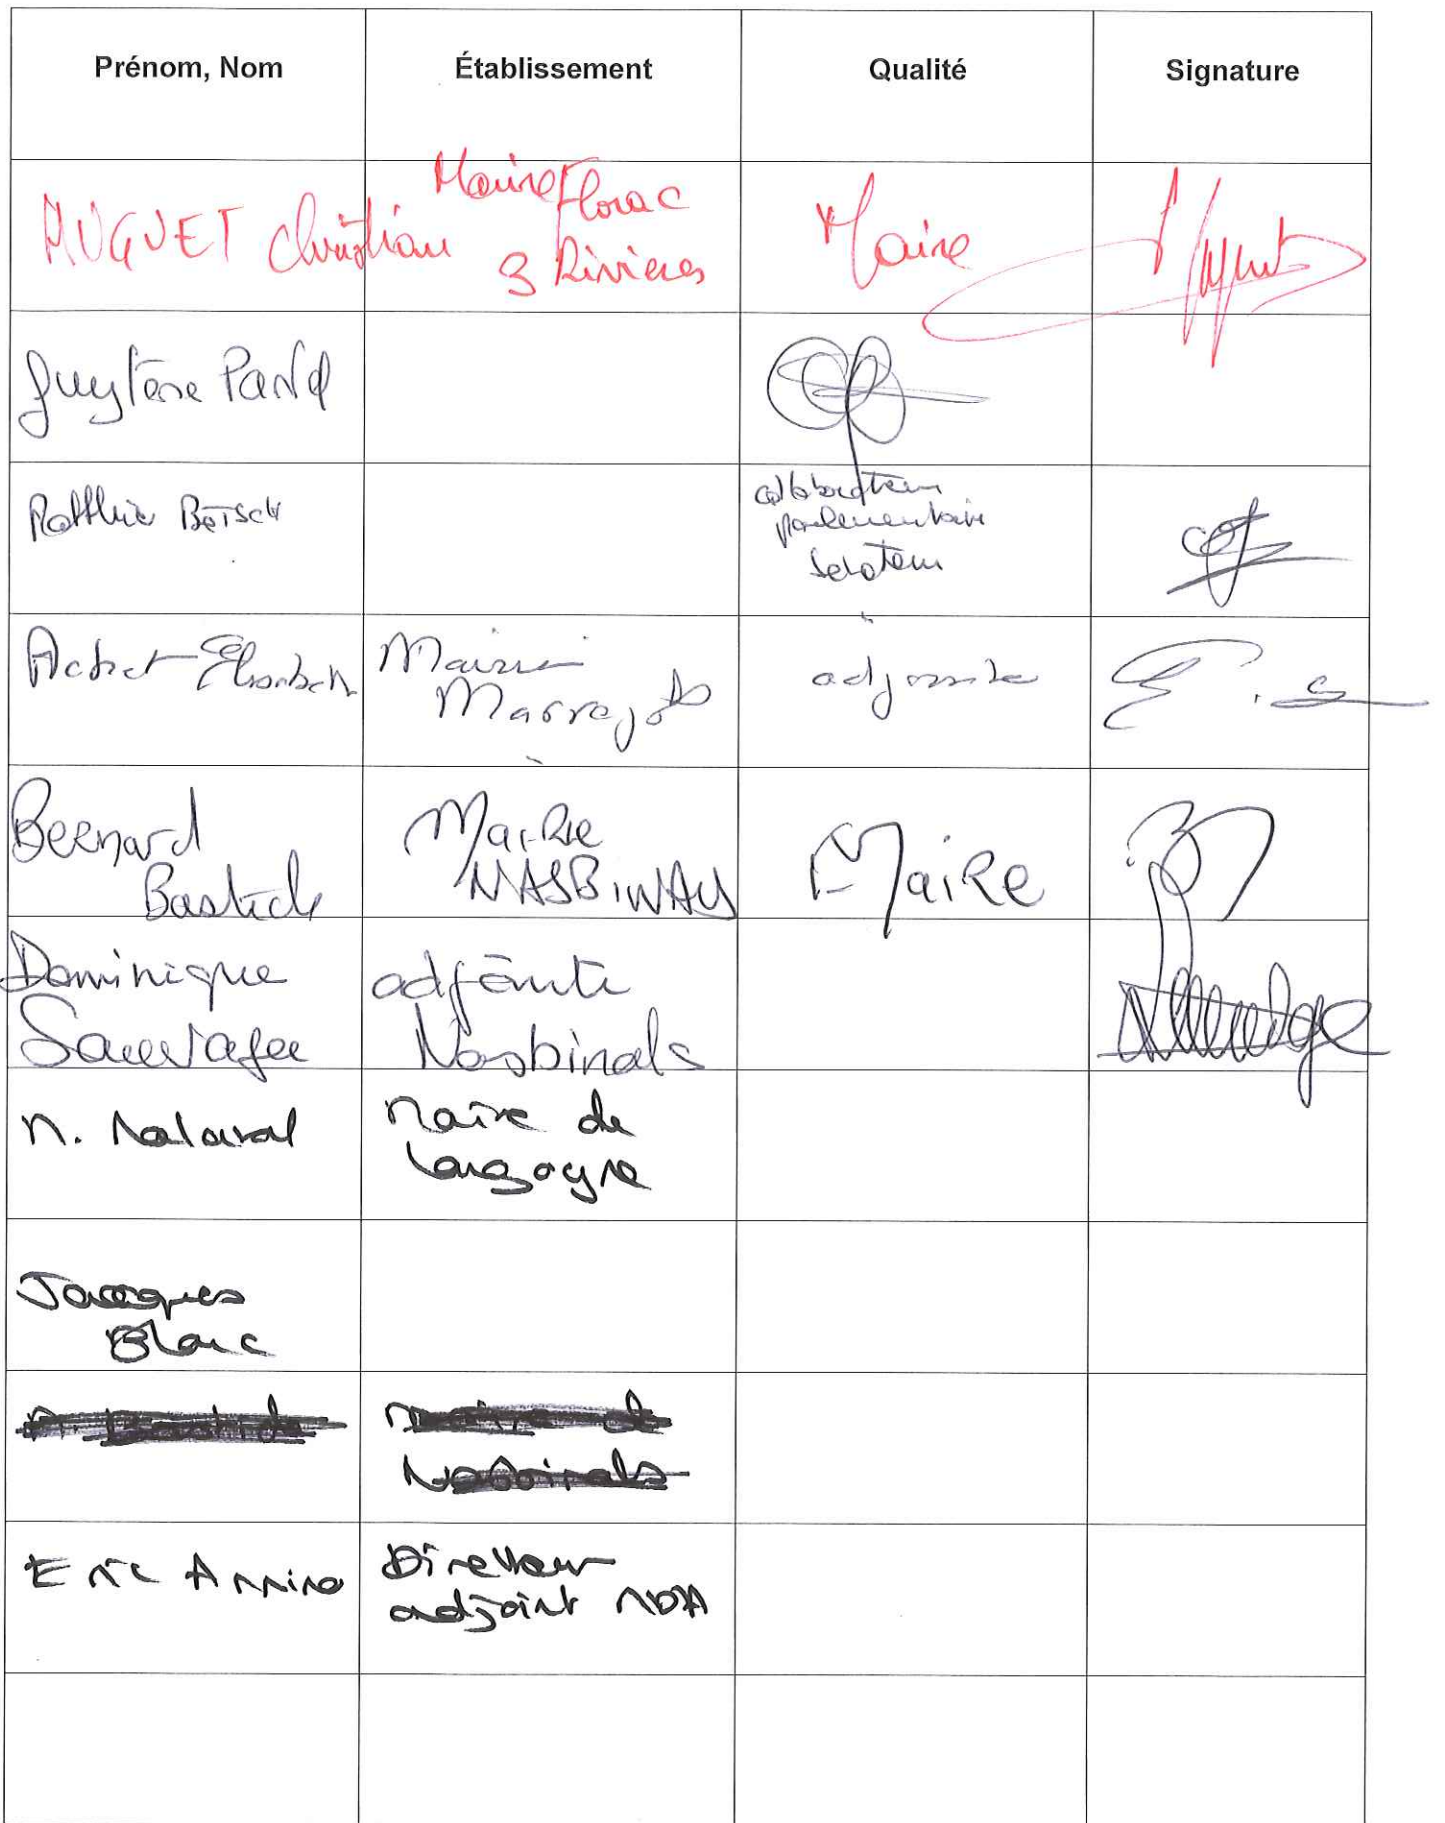 Prénom, Nom
Établissement
Qualité
Signature
HUGUET Christian
Maire Florac
3 Rivieres
Maire
Guylène Pantel
collaborateur
parlementaire
Senateur
Achet Elisabeth
Mairie
Marvejols
adjointe
Bernard
Bastide
Mairie
NASBINALS
Maire
Dominique
Sauvage
adjointe
Nasbinals
M. Malaval
Maire de
Langogne
Jacques
Blanc
Eric
Directeur
adjoint MDA